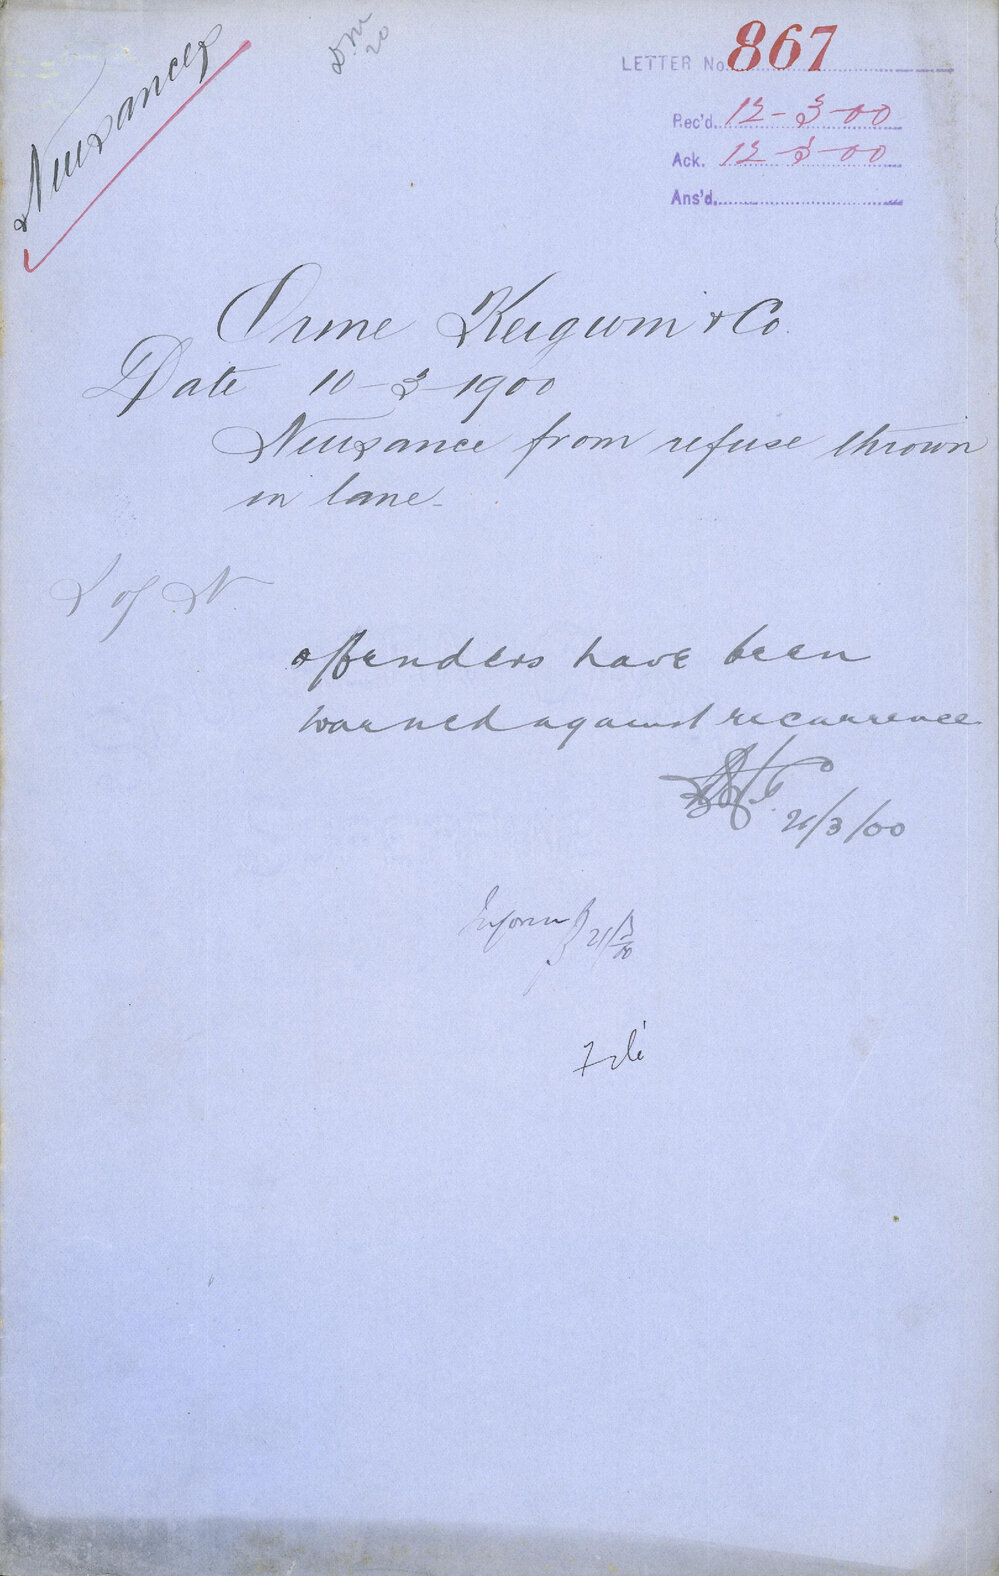 Nuisances
LETTER No. 867
Rec'd. 12-3-00
Ack. 12-3-00
Ans'd.
Orme Keigwin & Co.
Date 10-3-1900
Nuisance from refuse thrown
in lane-
I of N
offenders have been
warned against recurrence
21/3/00
Inform
21/3/00
File